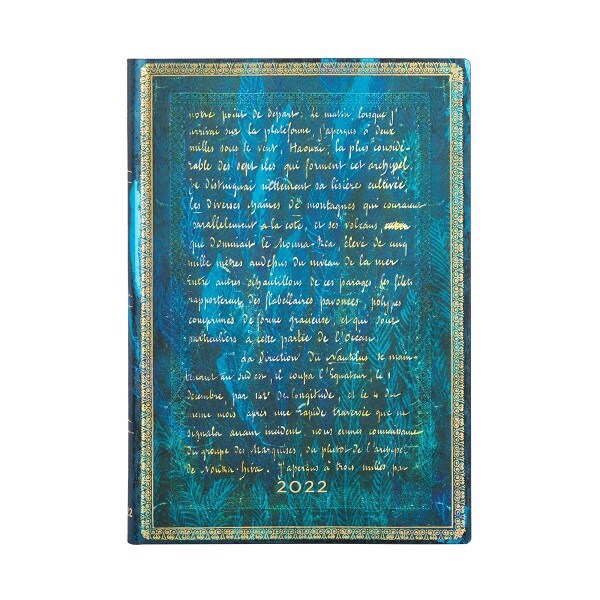 notre point de départ. Le matin, lorsque j'
arrivai sur la plateforme, j'aperçus à deux
milles sous le vent, Haouaï, la plus considé-
rable des sept îles qui forment cet archipel.
Je distinguai nettement sa lisière cultivée
les diverses chaînes de montagnes qui couraient
parallèlement à la côte, et ses volcans
que dominait le Mouna-Rea, élevé de cinq
mille mètres au dessus du niveau de la mer.
Entre autres échantillons de ces parages, les filets
rapportèrent, des flabellaires pavonées, polypes
comprimés de forme gracieuse, et qui sont
particuliers à cette partie de l'Océan.
La direction du Nautilus se main-
tenant au sud est, il coupa l'Equateur, le 1
décembre, par 142° de longitude, et le 4 du
même mois après une rapide traversée que ne
signala aucun incident, nous eûmes connaissance
du groupe des Marquises, ou plutôt de l'archipel
de Nouka-hiva. J'aperçus à trois milles, par
2022
2